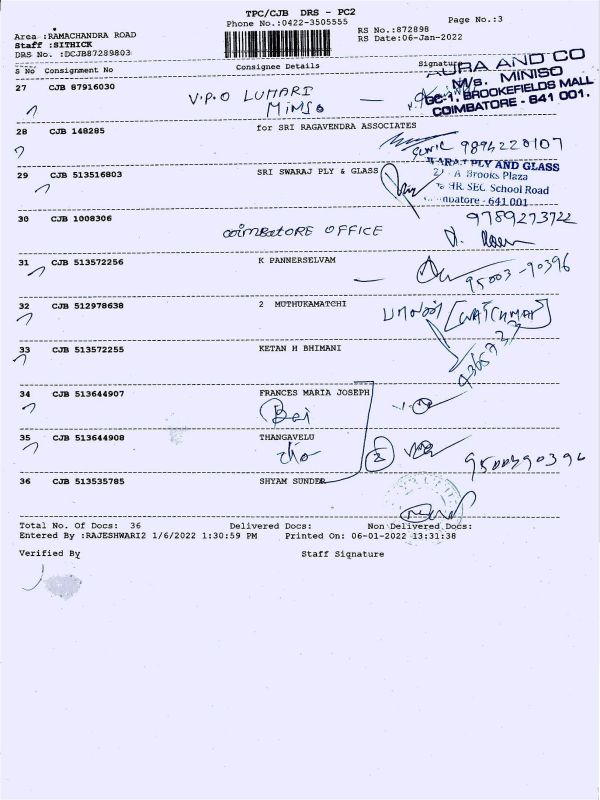 TPC/CJB DRS - PC2
Phone No.:0422-3505555
Page No.:3
RS No.:872898
RS Date:06-Jan-2022
Area :RAMACHANDRA ROAD
Staff :SITHICK
DRS No. :DCJB87289803
S No Consignment No Consignee Details Signature
27 CJB 87916030 V.P.O LUHARI
MiMSo
AURA AND CO
M/s. MINISO
GC-1, BROOKEFIELDS MALL
COIMBATORE - 641 001.
28 CJB 148285 for SRI RAGAVENDRA ASSOCIATES
9894220107
29 CJB 513516803 SRI SWARAJ PLY & GLASS
PLY AND GLASS
A Brooks Plaza
HR. SEC. School Road
641 001
9789273722
30 CJB 1008306 COIMBATORE OFFICE
31 CJB 513572256 K PANNERSELVAM
95003-90396
32 CJB 512978638 2 MUTHUKAMATCHI
[WATCHMAN]
33 CJB 513572255 KETAN H BHIMANI
34 CJB 513644907 FRANCES MARIA JOSEPH
35 CJB 513644908 THANGAVELU
2
9500390396
36 CJB 513535785 SHYAM SUNDER
Total No. Of Docs: 36 Delivered Docs: Non Delivered Docs:
Entered By :RAJESHWARI2 1/6/2022 1:30:59 PM Printed On: 06-01-2022 13:31:38
Verified By Staff Signature